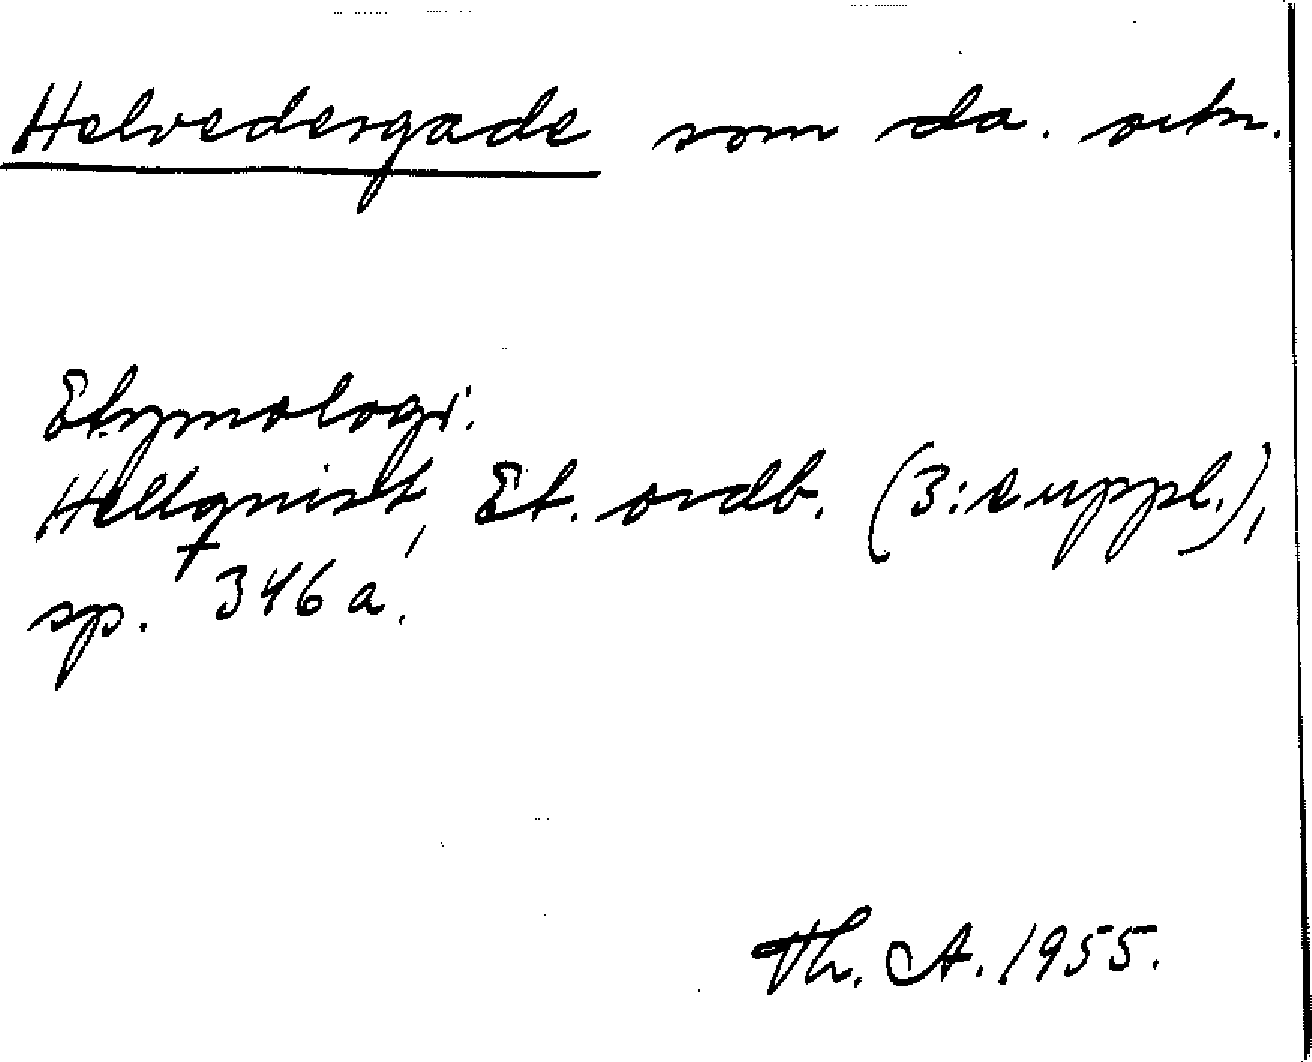 Helvedesgade som da. ortn.
Etymologi.
Hellquist, Et. ordb. (3: suppl.),
sp. 346 a.
Th. A. 1955.